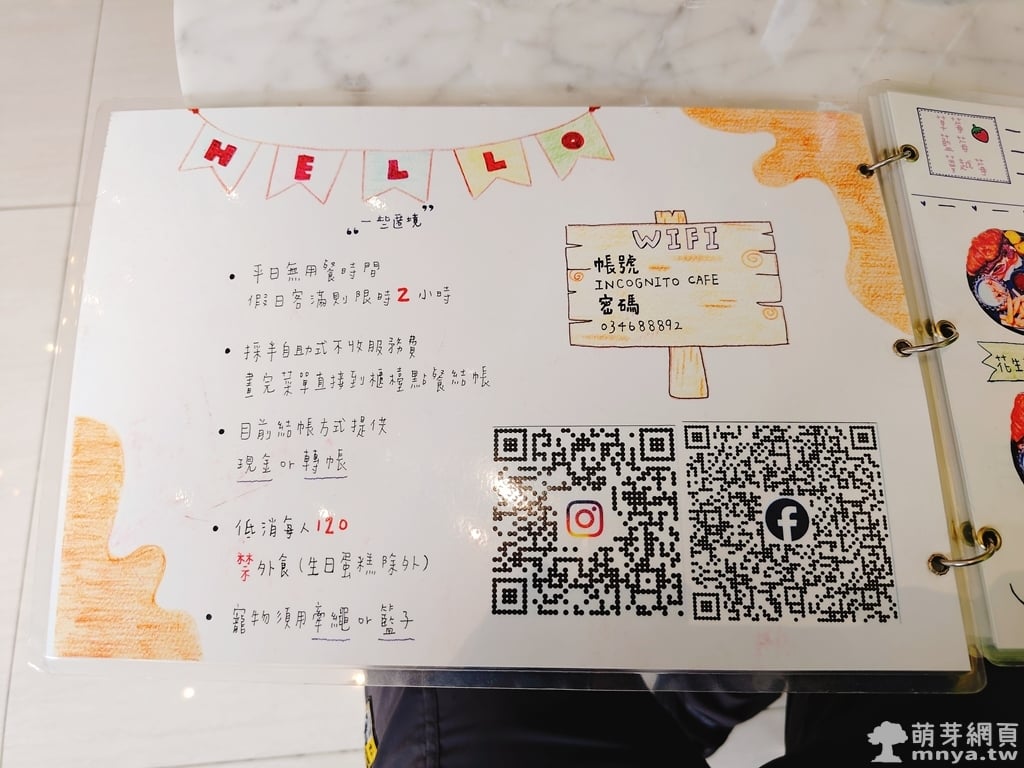 HELLO
“一些選境”
• 平日無用餐時間
假日客滿則限時2小時
• 採半自助式不收服務費
畫完菜單直接到櫃檯點餐結帳
• 目前結帳方式提供
現金or轉帳
• 低消每人120
禁外食(生日蛋糕除外)
• 寵物須用牽繩or籃子
WIFI
帳號
INCOGNITO CAFE
密碼
034688892
花生
萌芽網頁
mnya.tw